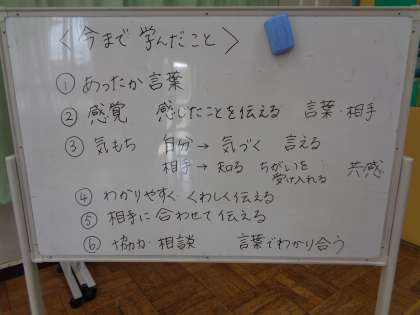 ＜今まで 学んだこと＞
① あったか言葉
② 感覚 感じたことを伝える 言葉・相手
③ 気もち 自分→気づく 言える
相手→知る ちがいを受け入れる 共感
④ わかりやすく くわしく伝える
⑤ 相手に合わせて伝える
⑥ 協力・相談 言葉でわかり合う